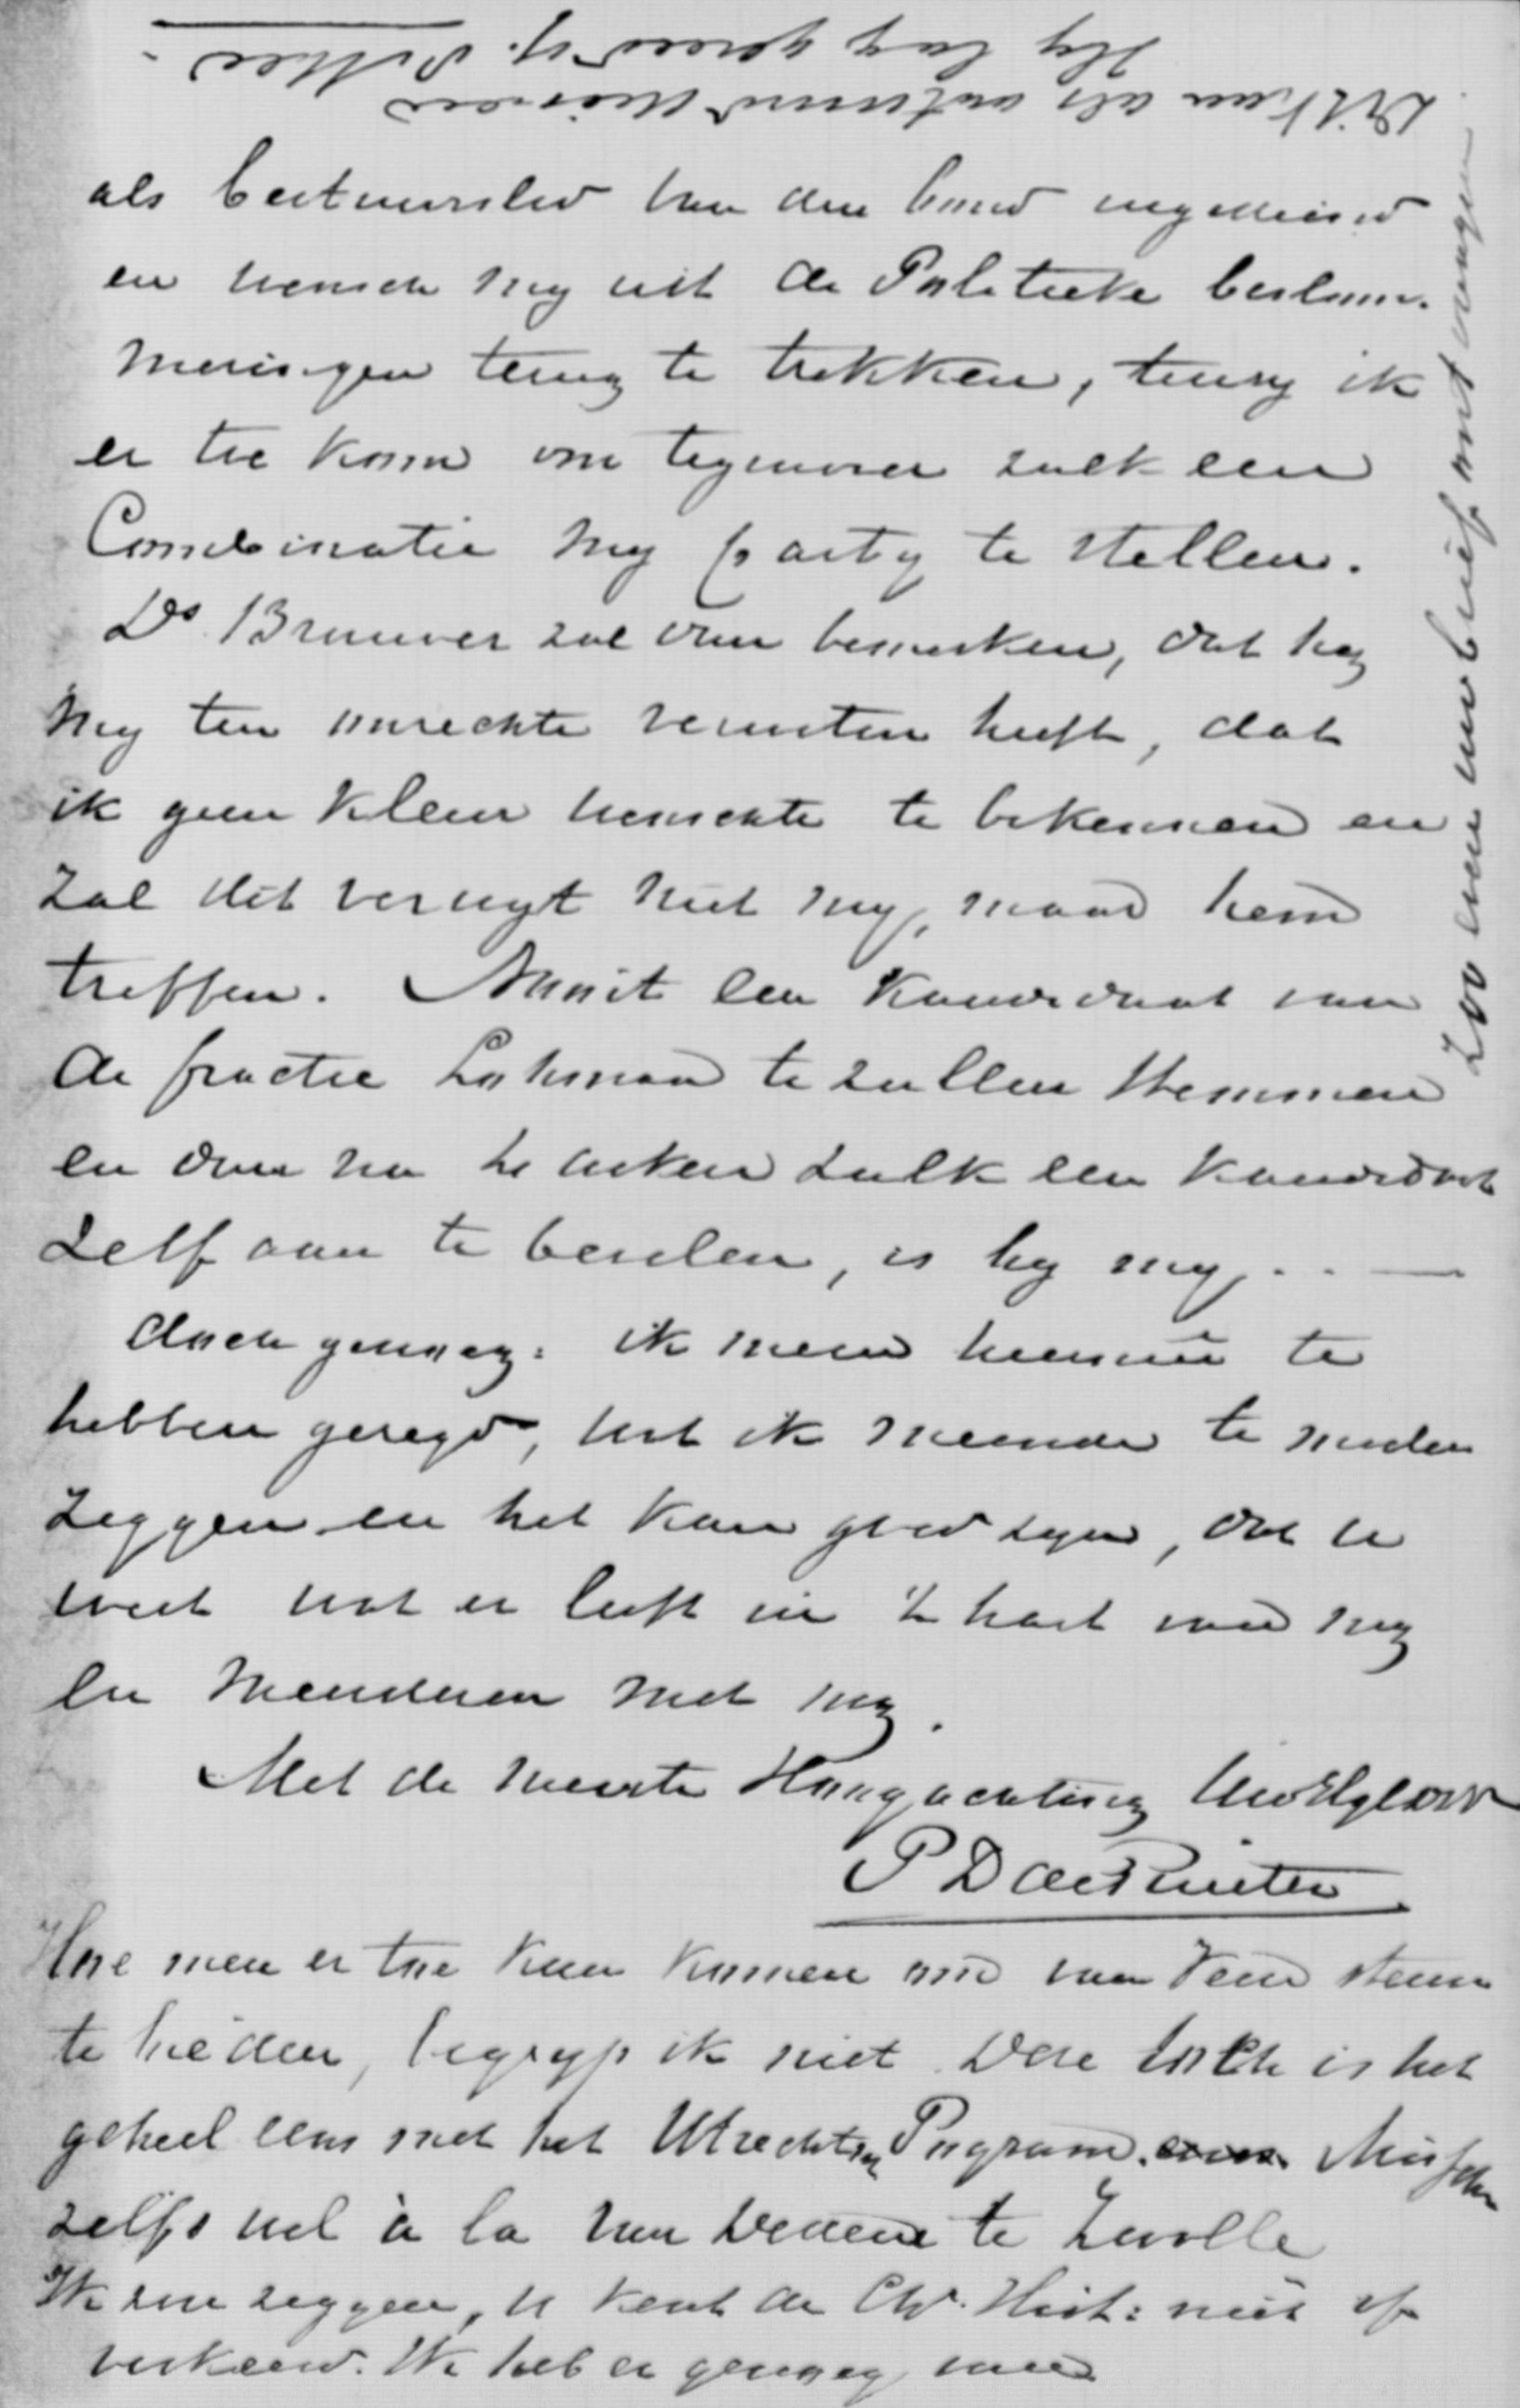 als bestuurslid van den bond
en wensch my uit de Politieke beslom-
meringen terug te trekken, tenzy ik
er toe kom om tegenover zulk een
Combinatie my party te stellen.
Ds. Brummer zal dan bemerken, dat hy
my ten onrechte verweten heeft, dat
ik geen kleur wenschte te bekennen en
zal dit verwyt niet my, maar hem
treffen. Nooit een Kandidaat van
de fractie Lohman te zullen stemmen
en dan na weken zulk een Kandidaat
zelf aan te bevelen, is by my . . —
doch genoeg. ik meen hiermee te
hebben gezegd, wat ik meende te moeten
zeggen en het kan goed zyn, dat U
weet wat er leeft in 't hart van my
en menigeen met my.
Met de meeste Hoogachting
P D de Ruiter
Hoe men er toe kan komen om van Veen steun
te bieden, begryp ik niet Deze toch is het
geheel eens met het Utrechtsch Program. Misschien
zelfs wel à la van Dedem te Zwolle
Ik zou zeggen, U kent de Chr. Hist: niet of
verkeerd. Ik heb er genoeg van
Zoo even uw brief ontvangen
Hy lag gereed